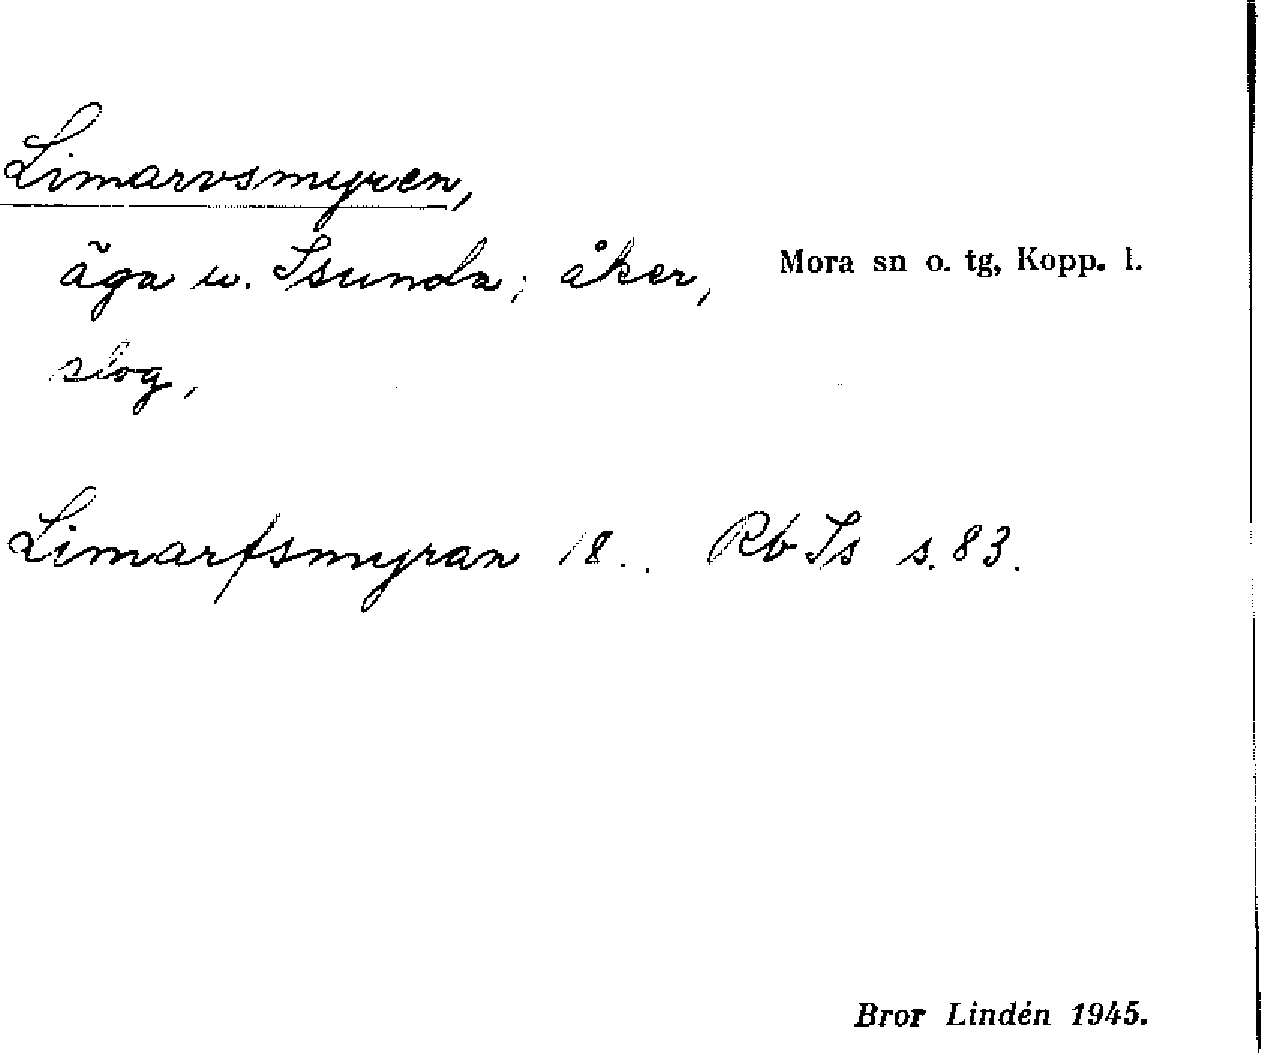 Limarvsmyren,
äga u. Isunda; åker, Mora sn o. tg, Kopp. l.
slog,
Limarfsmyran 18.. Rb Is s. 83.
Bror Lindén 1945.